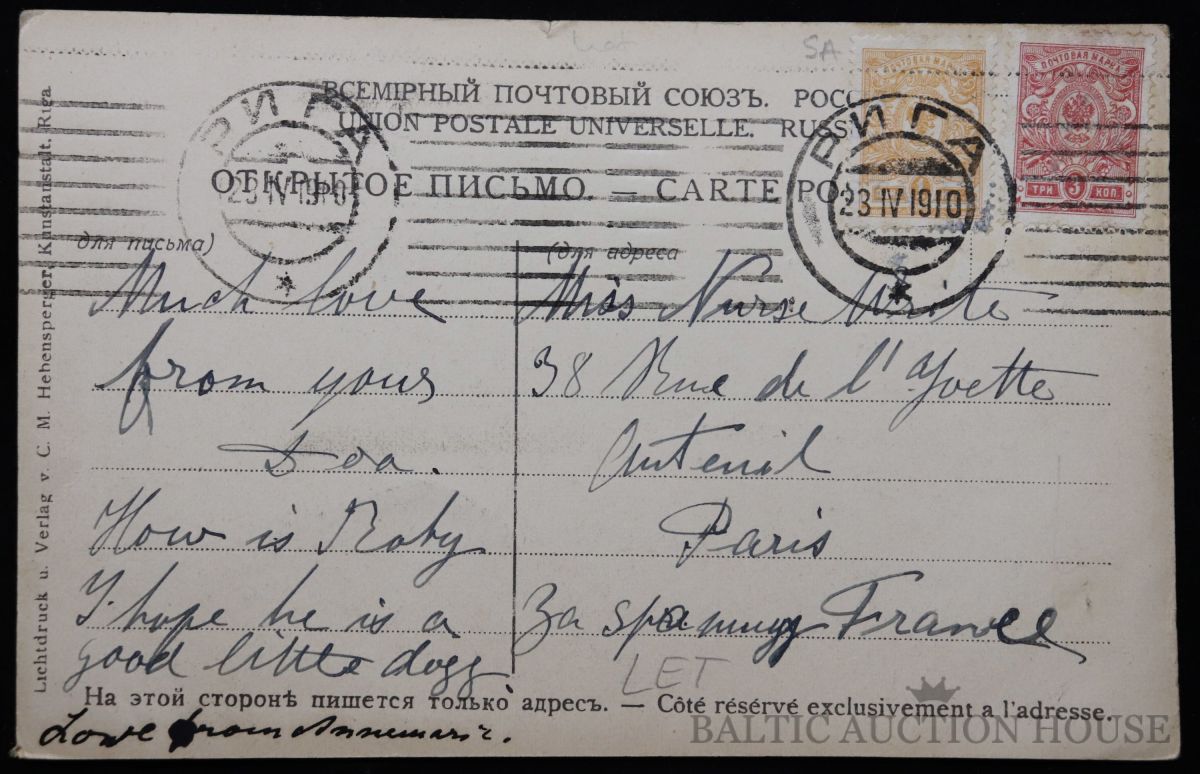 ВСЕМІРНЫЙ ПОЧТОВЫЙ СОЮЗЪ. РОСС
UNION POSTALE UNIVERSELLE. RUSS
ОТКРЫТОЕ ПИСЬМО. — CARTE PO
SA
ПОЧТОВАЯ МАРКА
ПОЧТОВАЯ МАРКА
ТРИ 3 КОП.
РИГА
23 IV 1910
РИГА
23 IV 1910
для письма)
Much love
from your
Doa.
How is Roby
I hope he is a
good little dogg
Love from Annemarie.
(для адреса
Miss Nurse
38 Rue de l'Yvette
Auteuil
Paris
За France
LET
На этой сторонѣ пишется только адресъ. — Côté résérvé exclusivement a l'adresse.
Lichtdruck u. Verlag v. C. M. Hebensperger, Kunstanstalt. Riga
BALTIC AUCTION HOUSE